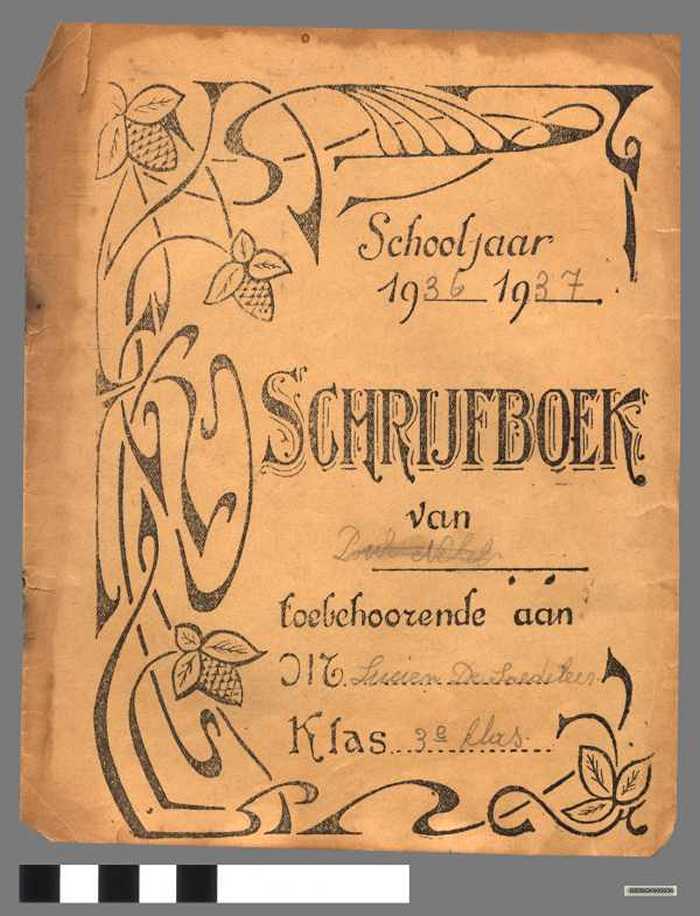 Schooljaar
1936 1937
SCHRIJFBOEK
van
toebehoorende aan
M Lucien De
Klas 3e klas